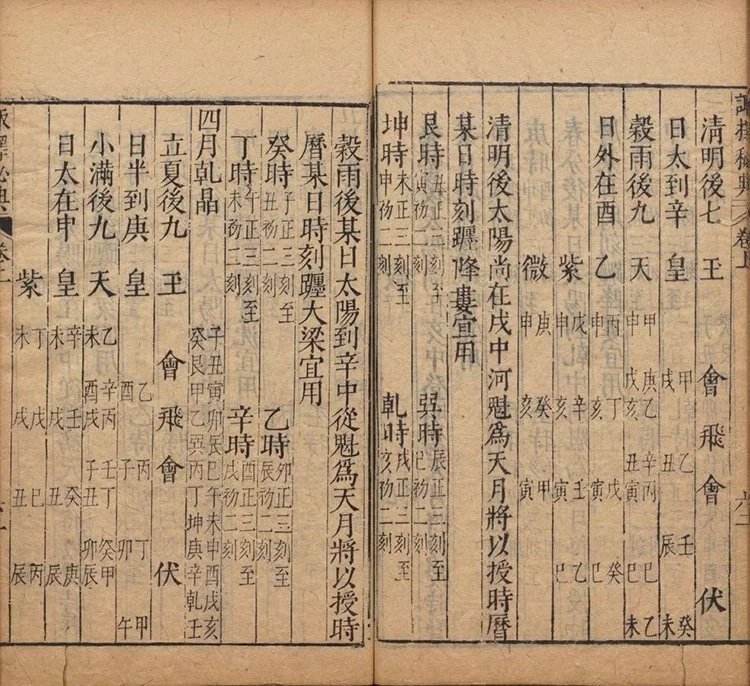 清明後七 王 會飛會 伏
日太到辛 皇 甲戌 乙丑 壬辰 癸未
穀雨後九 天 甲申 庚乙戌亥 辛丙丑寅 巳 乙未
日外在酉 乙 酉申 丁亥 戊寅 癸巳
紫 戊申 辛亥 壬寅 乙巳
微 庚申 癸亥 甲寅
清明後太陽尚在戌中河魁為天月將以授時曆
某日時刻躔降婁宜用
艮時 丑正三刻至寅初二刻 巽時 辰正三刻至巳初二刻
坤時 未正三刻至申初二刻 乾時 戌正三刻至亥初二刻
穀雨後某日太陽到辛中從魁為天月將以授時
曆某日時刻躔大梁宜用
癸時 子正三刻至丑初二刻 乙時 卯正三刻至辰初二刻
丁時 午正三刻至未初二刻 辛時 酉正三刻至戌初二刻
四月乾晶 子丑寅卯辰巳午未申酉戌亥 癸艮甲乙巽丙丁坤庚辛乾壬
立夏後九 王 會飛會 伏
日半到庚 皇 乙酉 丙子 丁卯 甲午
小滿後九 天 乙未 辛丙酉戌 壬丁子丑 癸甲卯辰
日太在申 皇 辛未 壬戌 癸丑 庚辰
紫 丁未 戊戌 己丑 丙辰